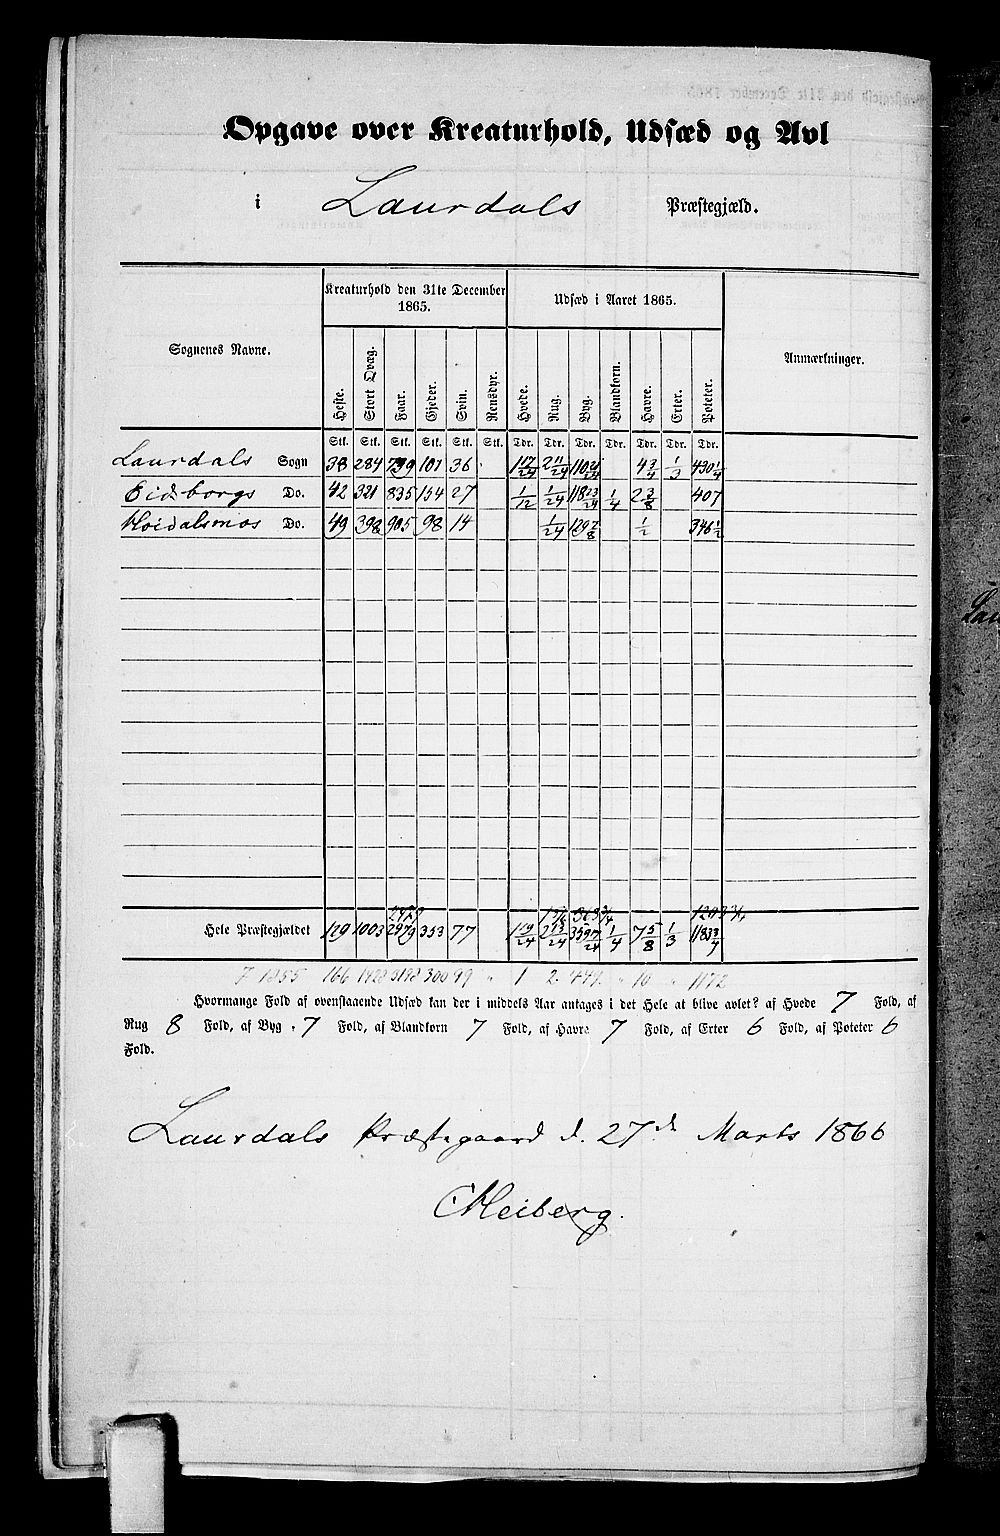 Opgave over Kreaturhold, Udsæd og Avl
i Laurdals Præstegjæld.
Sognenes Navne. Kreaturhold den 31te December 1865. Udsæd i Aaret 1865. Anmærkninger.
Heste. Stort Qvæg. Faar. Gjeder. Svin. Rensdyr. Hvede. Rug. Byg. Blandkorn. Havre. Erter. Poteter.
Stk. Stk. Stk. Stk. Stk. Stk. Tdr. Tdr. Tdr. Tdr. Tdr. Tdr. Tdr.
Laurdals Sogn 38 284 739 101 36 1 17/24 2 11/24 4 3/4 1/3 430 1/4
Eidsborgs Do. 42 321 835 154 27 1/12 1/24 118 23/24 1/4 2 3/8 407
Hoidalsmos Do. 49 398 905 98 14 1/24 129 7/8 1/2 346 1/2
Hele Præstegjældet 129 1003 2479 353 77 1 19/24 2 13/24 1/4 7 5/8 1/3 1183 3/4
1855 166 1428 300 99 " 1 2 " 10 " 1172
Hvormange Fold af ovenstaaende Udsæd kan der i middels Aar antages i det Hele at blive avlet? af Hvede 7 Fold, af
Rug 8 Fold, af Byg 7 Fold, af Blandkorn 7 Fold, af Havre 7 Fold, af Erter 6 Fold, af Poteter 6
Fold.
Laurdals Præstegaard d. 27de Marts 1866
Meiberg.